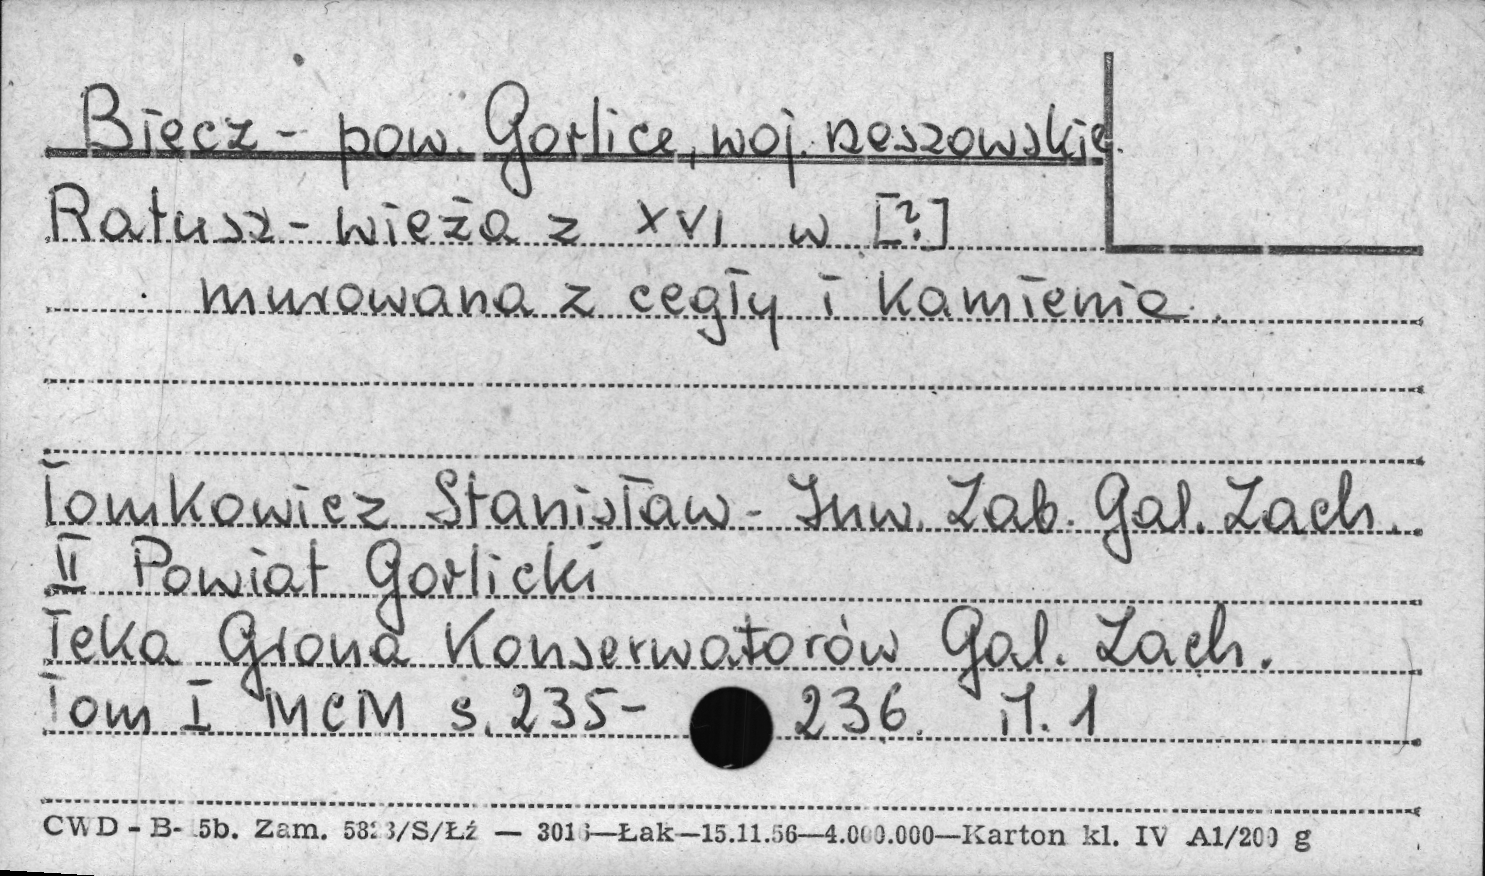 Biecz - pow. Gorlice, woj. rzeszowskie.
Ratusz - wieża z XVI w [?]
murowana z cegły i kamienia.
Tomkowicz Stanisław - Inw. Zab. Gal. Zach.
II Powiat Gorlicki
Teka Grona Konserwatorów Gal. Zach.
Tom I MCM s. 235- 236. il. 1
CWD - B- 5b. Zam. 5823/S/Łź — 3016—Łak—15.11.56—4.000.000—Karton kl. IV A1/200 g